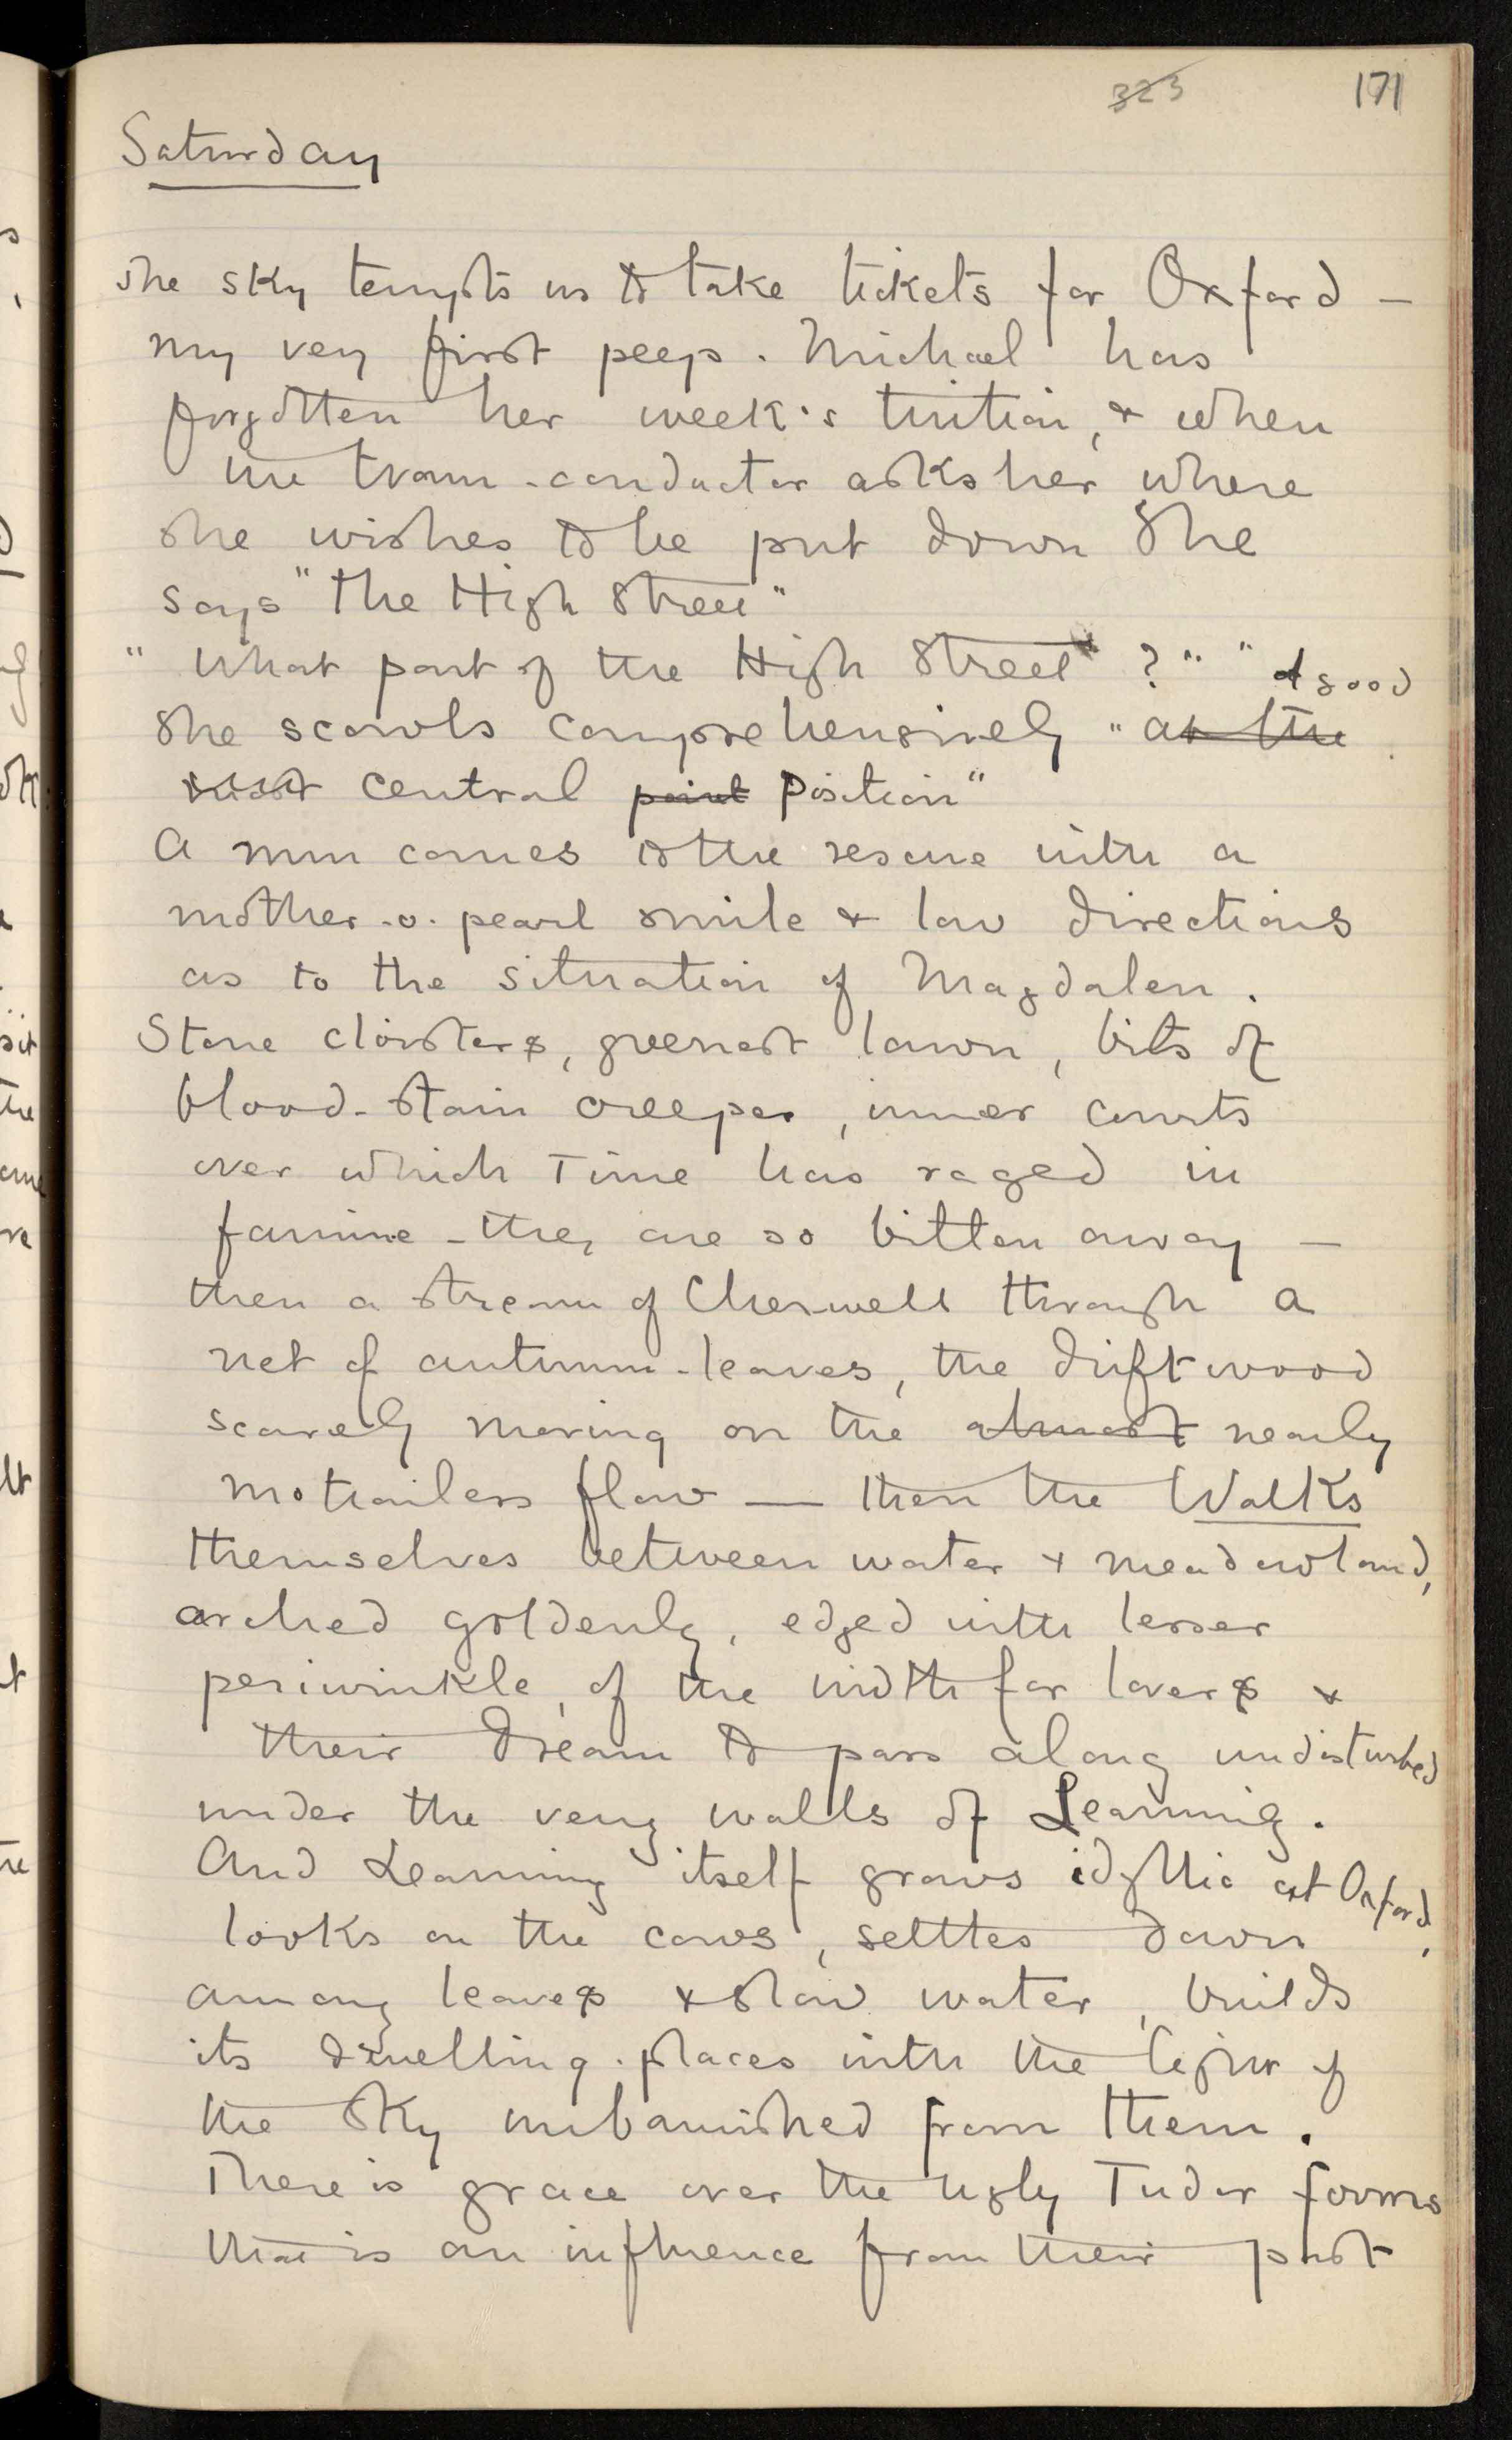 323 171
Saturday
The sky tempts us to take tickets for Oxford —
my very first peep. Michael has
forgotten her week's tuition, & when
the tram-conductor asks her where
she wishes to be put down she
says "the High Street"
"What part of the High Street?" "A good
she scowls comprehensively "at the
central point position"
A nun comes to the rescue with a
mother-o-pearl smile & low directions
as to the situation of Magdalen.
Stone cloisters, greenest lawn, bits of
blood-stain creeper, inner courts
over which Time has raged in
famine - they are so bitten away —
then a stream of Cherwell through a
net of autumn-leaves, the driftwood
scarcely moving on the almost nearly
motionless flow — then the Walks
themselves between water & meadowland,
arched goldenly, edged with lesser
periwinkle, of the width for lovers &
their dream to pass along undisturbed
under the very walls of Learning.
And Learning itself grows idyllic at Oxford,
looks on the cows, settles down
among leaves & slow water, builds
its dwelling-places with the light of
the sky unbanished from them.
There is grace over the ugly Tudor forms
that is an influence from their past